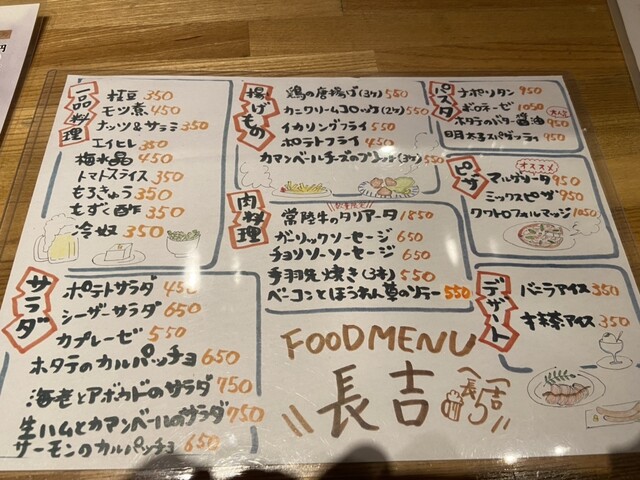 一品料理
枝豆 350
モツ煮 450
ナッツ&サラミ 350
エイヒレ 350
梅水晶 450
トマトスライス 350
もろきゅう 350
もずく酢 350
冷奴 350
揚げもの
鶏の唐揚げ(3ヶ) 550
カニクリームコロッケ(2ヶ) 550
イカリングフライ 550
ポテトフライ 450
カマンベールチーズのフリット(3ヶ) 550
パスタ
ナポリタン 950
ボロネーゼ 1050
ホタテのバター醤油 950
明太子スパゲッティ 950
ピザ
オススメ
マルゲリータ 950
ミックスピザ 950
クワトロフォルマッジ 1050
肉料理
数量限定
常陸牛のタリアータ 1850
ガーリックソーセージ 650
チョリソーソーセージ 650
手羽先焼き(3本) 550
ベーコンとほうれん草のソテー 550
サラダ
ポテトサラダ 450
シーザーサラダ 650
カプレーゼ 550
ホタテのカルパッチョ 650
海老とアボカドのサラダ 750
生ハムとカマンベールのサラダ 750
サーモンのカルパッチョ 650
デザート
バニラアイス 350
抹茶アイス 350
FOOD MENU
長吉
長吉